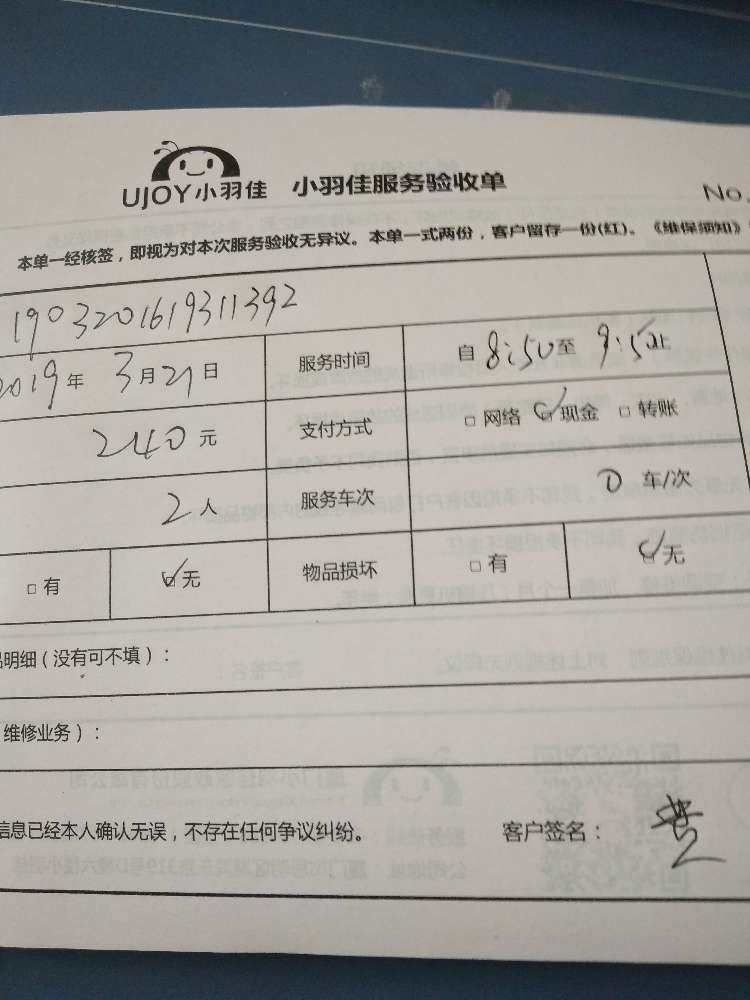 UJOY小羽佳 小羽佳服务验收单
No.
本单一经核签，即视为对本次服务验收无异议。本单一式两份，客户留存一份(红)。《维保须知》
1903201619311392
2019年 3月21日 服务时间 自 8:50 至 9:50 止
240元 支付方式 □网络 ☑现金 □转账
2人 服务车次 0 车/次
□有 ☑无 物品损坏 □有 ☑无
品明细（没有可不填）：
维修业务）：
信息已经本人确认无误，不存在任何争议纠纷。 客户签名：